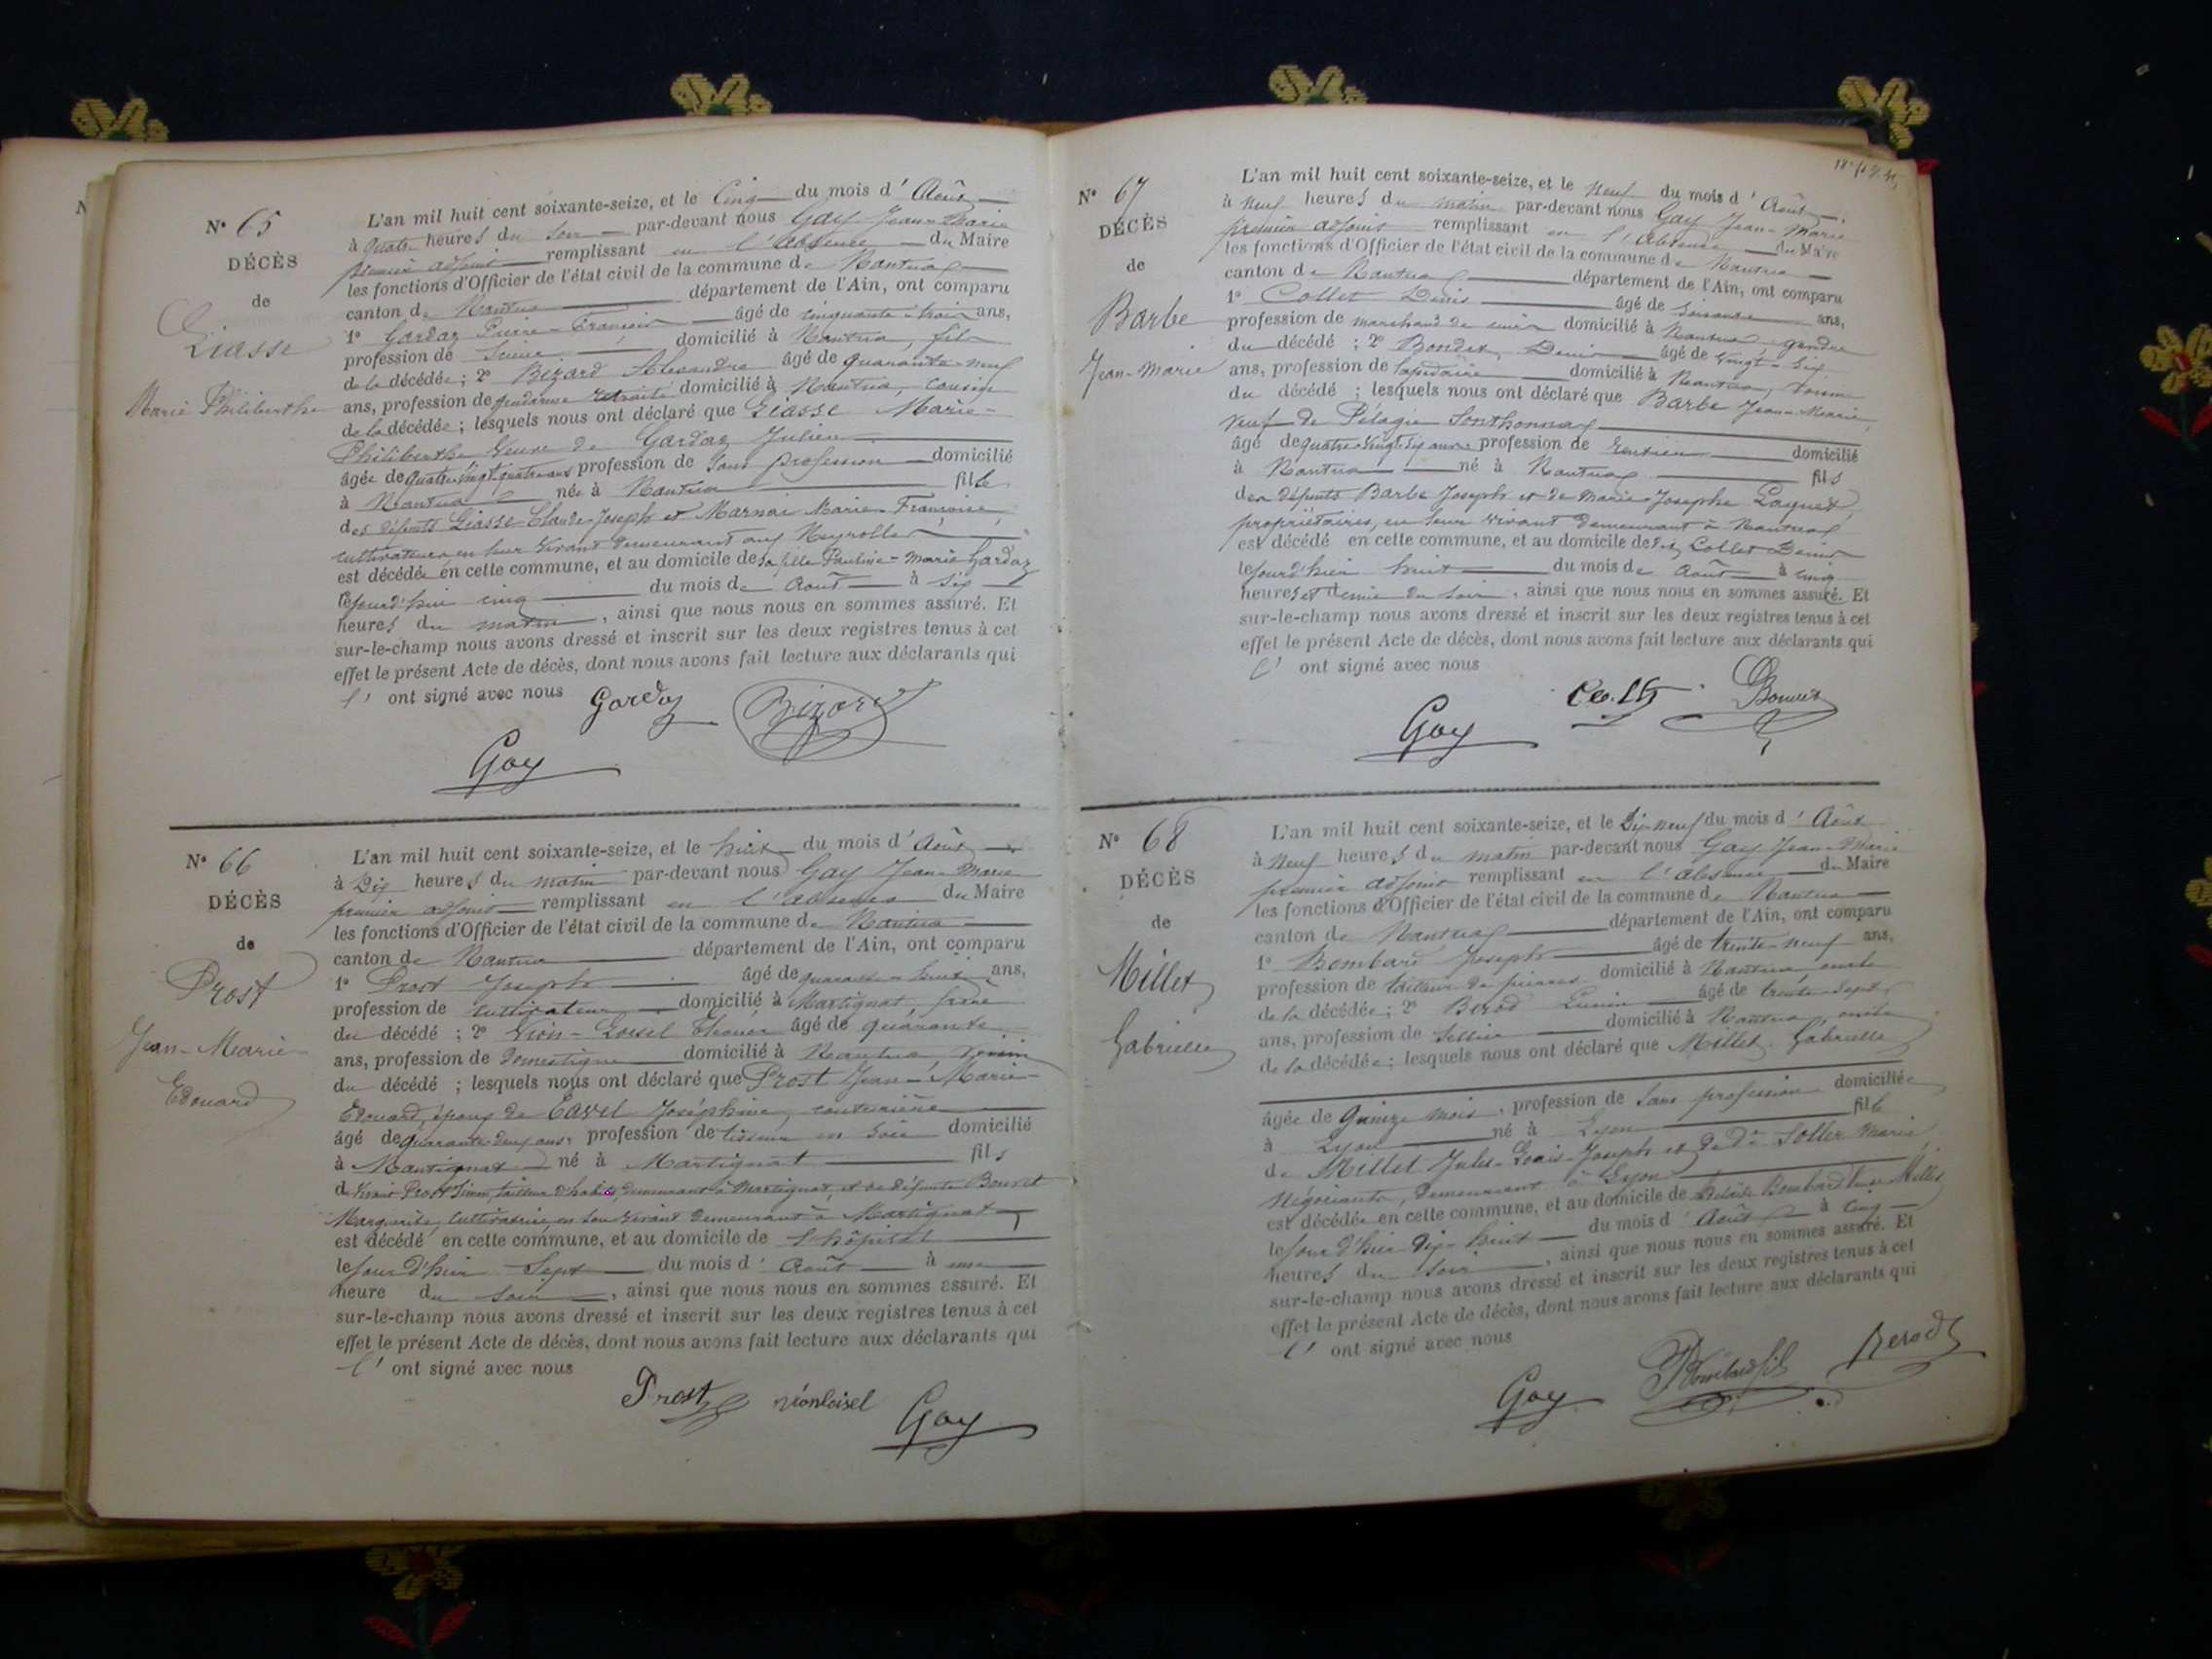 N° 65
DÉCÈS
de
Liasse
Marie Philiberthe
L'an mil huit cent soixante-seize, et le cinq du mois d' Août
à quatre heures du soir par-devant nous Gay Jean-Marie
premier adjoint remplissant en l'absence du Maire
les fonctions d'Officier de l'état civil de la commune de Nantua
canton de Nantua département de l'Ain, ont comparu
1° Gardaz Pierre-François âgé de cinquante-trois ans,
profession de domicilié à Nantua, fils
de la décédée ; 2° Bizard Alexandre âgé de quarante-neuf
ans, profession de gendarme retraité domicilié à Nantua, cousin
de la décédée ; lesquels nous ont déclaré que Liasse Marie-
Philiberthe veuve de Gardaz Julien
âgée de quatre-vingt-quatre ans profession de sans profession domicilié
à Nantua née à Nantua fille
des défunts Liasse Claude-Joseph et Marnai Marie-Françoise,
cultivateurs en leur vivant demeurant aux Neyrolles
est décédée en cette commune, et au domicile de sa fille Pauline-Marie Gardaz
le jourd'hui cinq du mois de Août à six
heures du matin, ainsi que nous nous en sommes assuré. Et
sur-le-champ nous avons dressé et inscrit sur les deux registres tenus à cet
effet le présent Acte de décès, dont nous avons fait lecture aux déclarants qui
l' ont signé avec nous
Gardaz Bizard
Gay
N° 66
DÉCÈS
de
Prost
Jean-Marie
Edouard
L'an mil huit cent soixante-seize, et le huit du mois d' Août
à Dix heures du matin par-devant nous Gay Jean-Marie
premier adjoint remplissant en l'absence du Maire
les fonctions d'Officier de l'état civil de la commune de Nantua
canton de Nantua département de l'Ain, ont comparu
1° Prost Joseph âgé de quarante-huit ans,
profession de cultivateur domicilié à Martignat, frère
du décédé ; 2° Vion-Loisel âgé de quarante
ans, profession de domestique domicilié à Nantua, voisin
du décédé ; lesquels nous ont déclaré que Prost Jean-Marie-
Edouard, époux de Cavel Joséphine, couturière
âgé de quarante-deux ans, profession de tisseur en soie domicilié
à Martignat né à Martignat fils
de vivant Prost Simon, tailleur d'habits, demeurant à Martignat, et de défunte Bouvet
Marguerite, cultivatrice, en son vivant demeurant à Martignat,
est décédé en cette commune, et au domicile de l'hôpital
le jour d'hier sept du mois d' Août à une
heure du soir, ainsi que nous nous en sommes assuré. Et
sur-le-champ nous avons dressé et inscrit sur les deux registres tenus à cet
effet le présent Acte de décès, dont nous avons fait lecture aux déclarants qui
l' ont signé avec nous
Prost vionloisel Gay
N° 67
DÉCÈS
de
Barbe
Jean-Marie
L'an mil huit cent soixante-seize, et le neuf du mois d' Août
à neuf heures du matin par-devant nous Gay Jean-Marie
premier adjoint remplissant en l'absence du Maire
les fonctions d'Officier de l'état civil de la commune de Nantua
canton de Nantua département de l'Ain, ont comparu
1° Collet Denis âgé de soixante ans,
profession de marchand de domicilié à Nantua gendre
du décédé ; 2° Denis âgé de vingt-six
ans, profession de lapidaire domicilié à Nantua, voisin
du décédé ; lesquels nous ont déclaré que Barbe Jean-Marie,
veuf de Pélagie Sonthonnax
âgé de quatre-vingt-six ans, profession de rentier domicilié
à Nantua né à Nantua fils
des défunts Barbe Joseph et de Marie-Josephe Paquet,
propriétaires, en leur vivant demeurant à Nantua
est décédé en cette commune, et au domicile de Collet Denis
le jour d'hier huit du mois de Août à cinq
heures et demie du soir, ainsi que nous nous en sommes assuré. Et
sur-le-champ nous avons dressé et inscrit sur les deux registres tenus à cet
effet le présent Acte de décès, dont nous avons fait lecture aux déclarants qui
l' ont signé avec nous
Gay
N° 68
DÉCÈS
de
Millet
Gabrielle
L'an mil huit cent soixante-seize, et le dix-neuf du mois d' Août
à neuf heures du matin par-devant nous Gay Jean-Marie
premier adjoint remplissant en l'absence du Maire
les fonctions d'Officier de l'état civil de la commune de Nantua
canton de Nantua département de l'Ain, ont comparu
1° Bombard Joseph âgé de trente-neuf ans,
profession de tailleur de pierres domicilié à Nantua, oncle
de la décédée ; 2° Berod âgé de trente-sept
ans, profession de sellier domicilié à Nantua,
de la décédée ; lesquels nous ont déclaré que Millet Gabrielle
âgée de quinze mois, profession de sans profession domiciliée
à Lyon né à Lyon fille
de Millet Jules-Louis-Joseph et de De Soller Marie,
négociants, demeurant à Lyon
est décédée en cette commune, et au domicile de Bombard Millet
le jour d'hier dix-huit du mois d' Août à cinq
heures du soir, ainsi que nous nous en sommes assuré. Et
sur-le-champ nous avons dressé et inscrit sur les deux registres tenus à cet
effet le présent Acte de décès, dont nous avons fait lecture aux déclarants qui
l' ont signé avec nous
Gay Bombard fils Berod